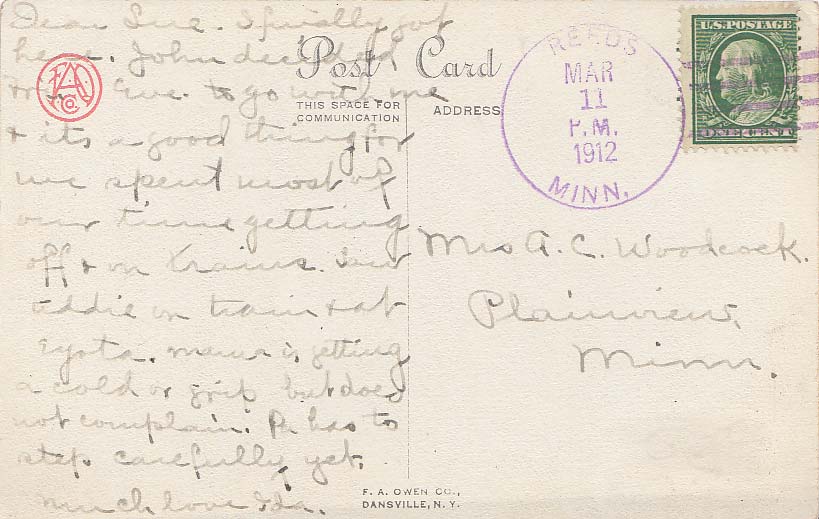 Dear Sue. I finally got
here. John decided
Eve. to go with me
& its a good thing for
we spent most of
our time getting
off & on trains. Saw
addie on train & at
Eyota. mama is getting
a cold or grip but does
not complain. Pa has to
step carefully yet.
much love Ida.
Post Card
THIS SPACE FOR
COMMUNICATION
ADDRESS
REEDS
MAR
11
P.M.
1912
MINN.
U.S. POSTAGE
ONE CENT
Mrs A. C. Woodcock.
Plainview,
Minn.
F. A. OWEN CO.,
DANSVILLE, N. Y.